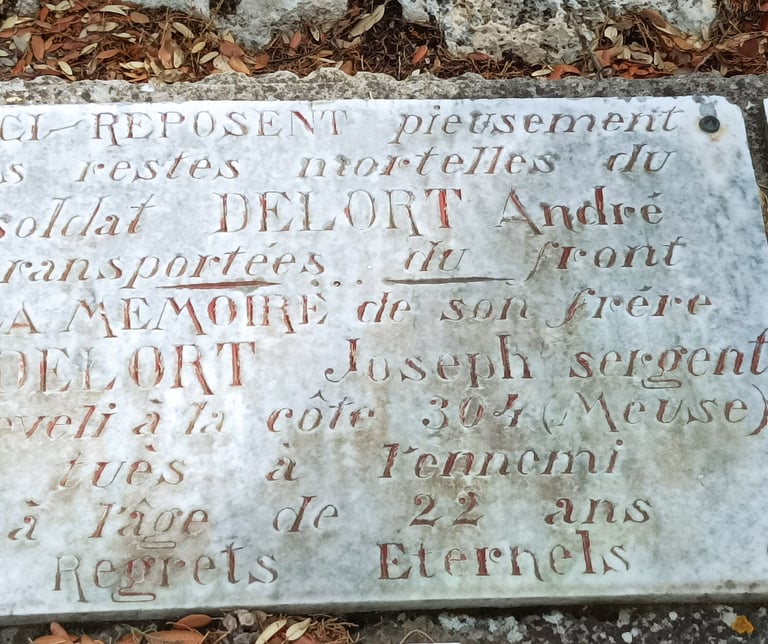 CI REPOSENT pieusement
s restes mortelles du
soldat DELORT André
ransportées ... du front
LA MEMOIRE de son frére
DELORT Joseph sergent
eveli à la côte 304 (Meuse)
tuès à l'ennemi
à l'âge de 22 ans
Regrets Eternels